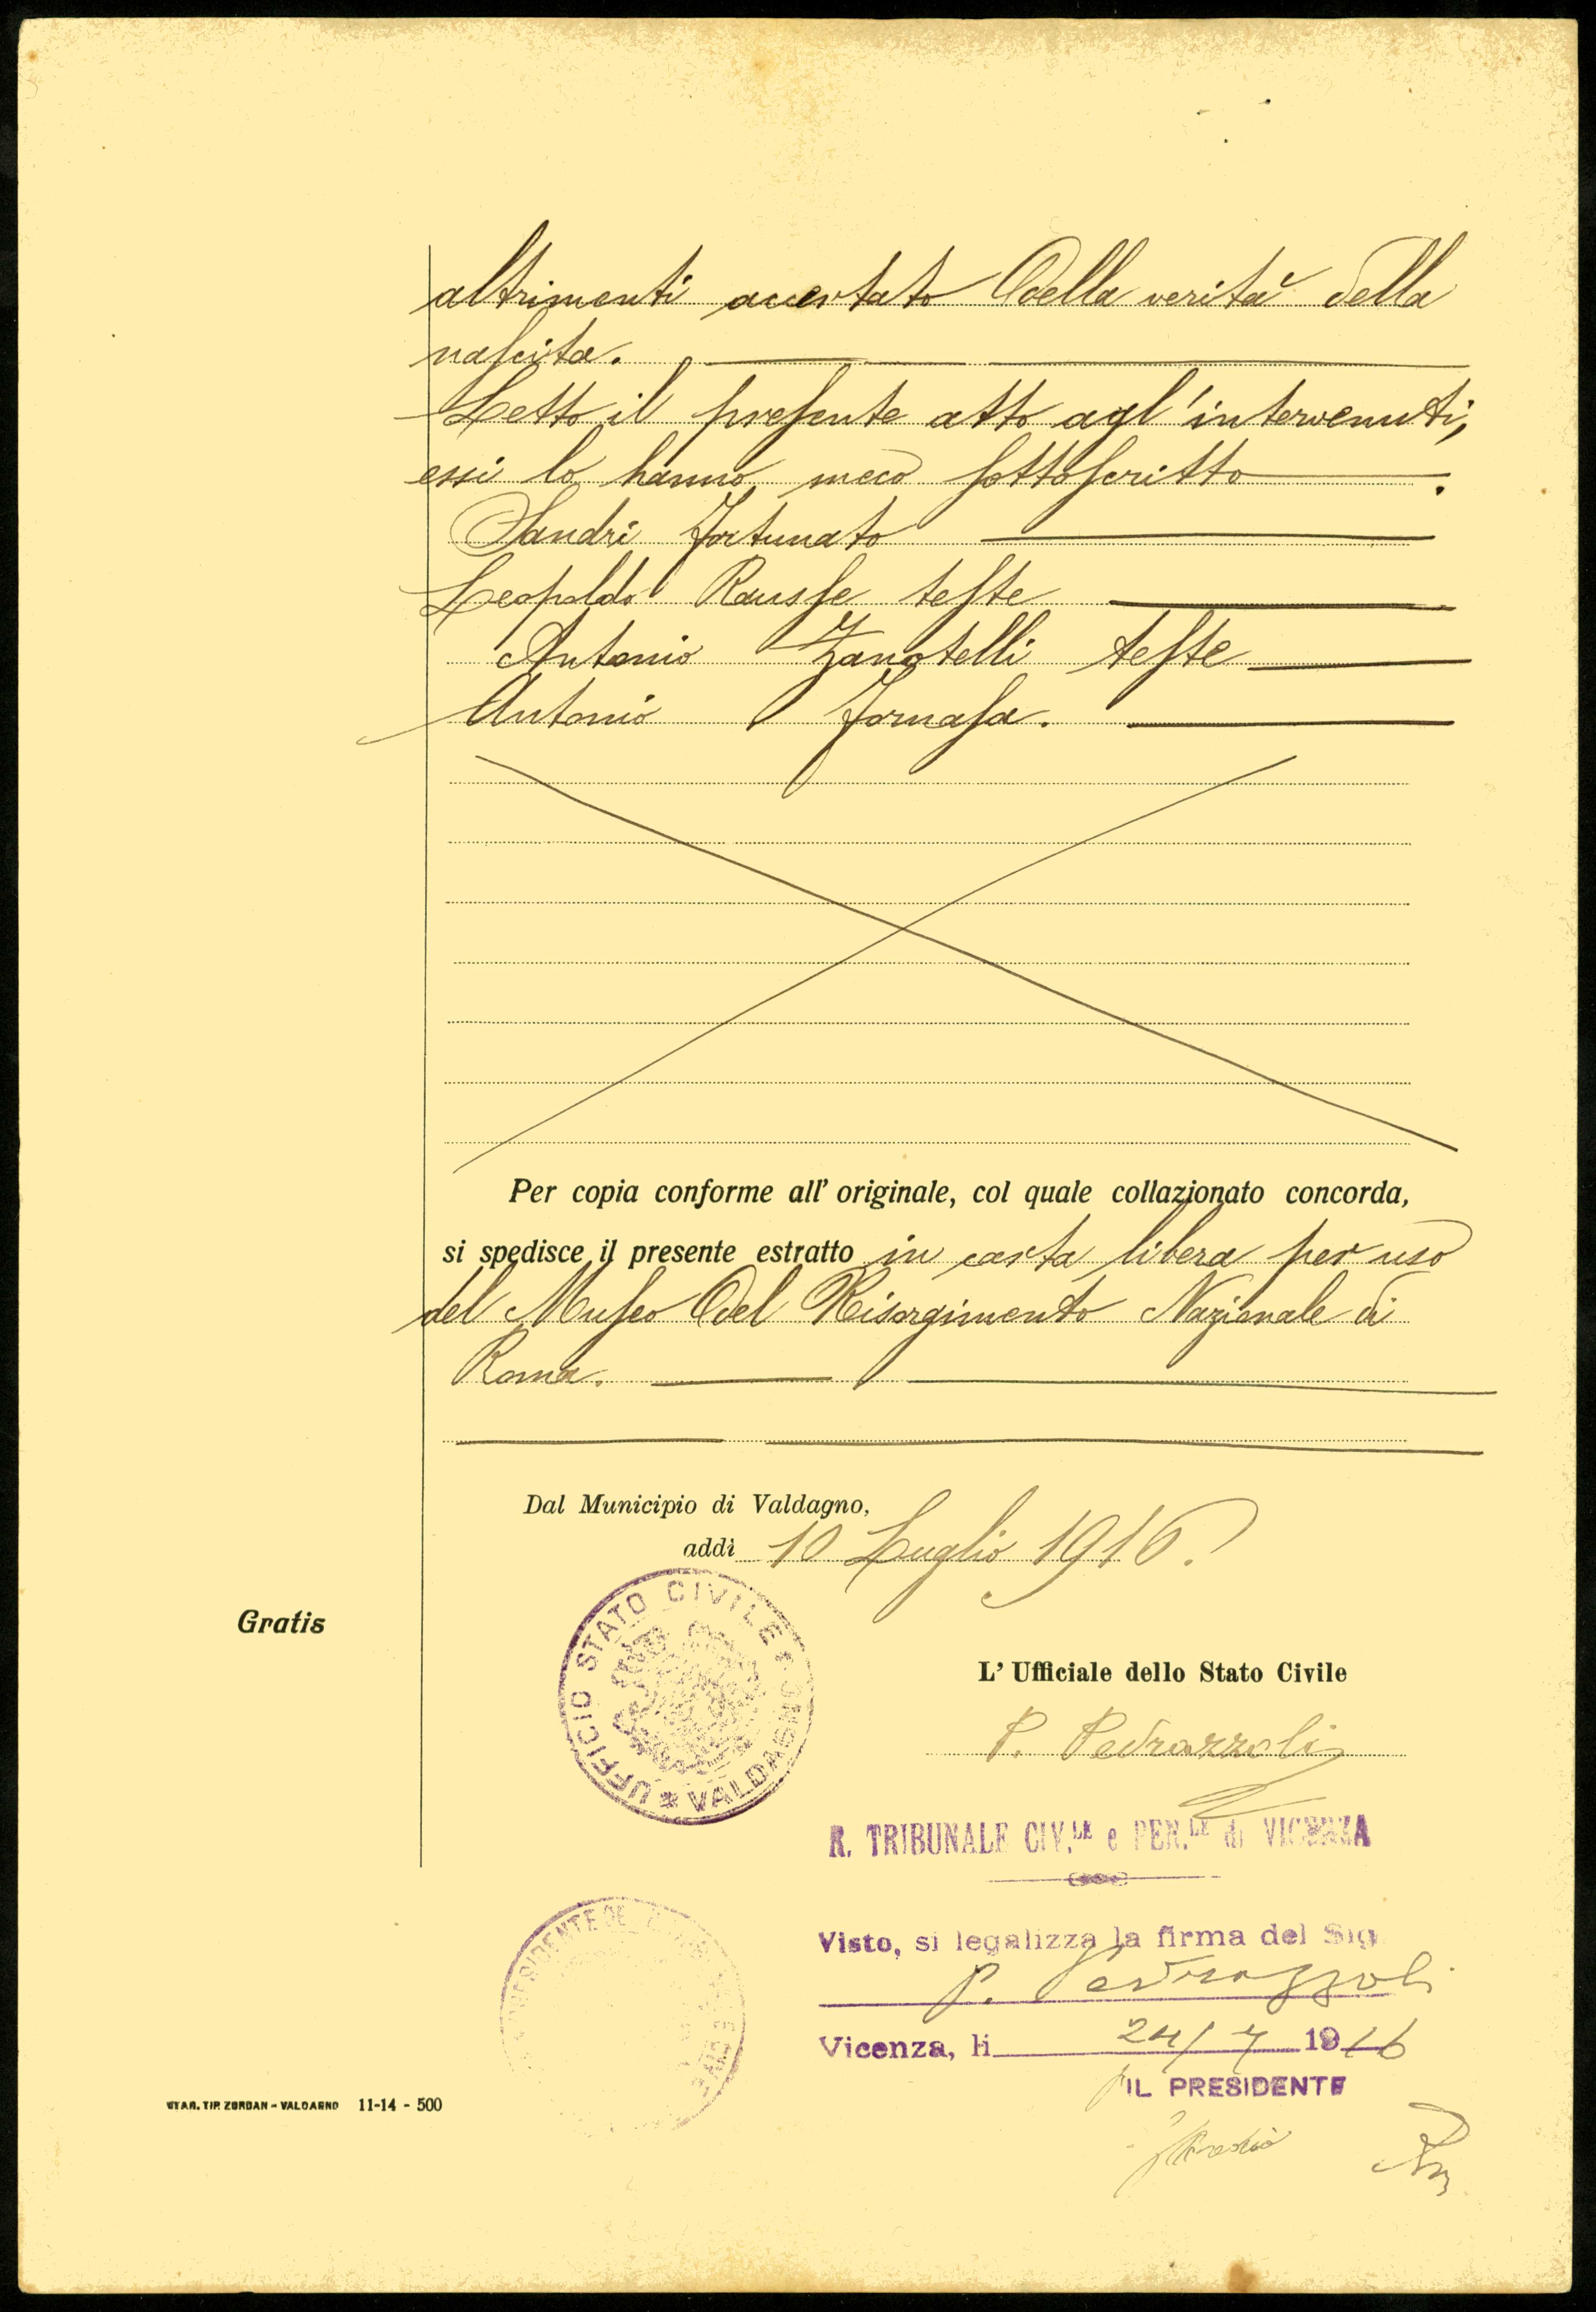 altrimenti accertato della verità della
nascita.
Letto il presente atto agl'intervenuti,
essi lo hanno meco sottoscritto.
Sandri Fortunato
Leopoldo Rausse teste
Antonio Zanotelli teste
Antonio Fornasa.
Per copia conforme all' originale, col quale collazionato concorda,
si spedisce il presente estratto in carta libera per uso
del Museo del Risorgimento Nazionale di
Roma.
Dal Municipio di Valdagno,
addì 10 Luglio 1916.
UFFICIO STATO CIVILE * VALDAGNO *
Gratis
L' Ufficiale dello Stato Civile
P. Pedrazzoli
R. TRIBUNALE CIV.LE e PEN.LE di VICENZA
Visto, si legalizza la firma del Sig.
P. Pedrazzoli
Vicenza, li 24/7 1916
IL PRESIDENTE
PRESIDENTE DEL
STAB. TIP. ZORDAN - VALDAGNO 11-14 - 500